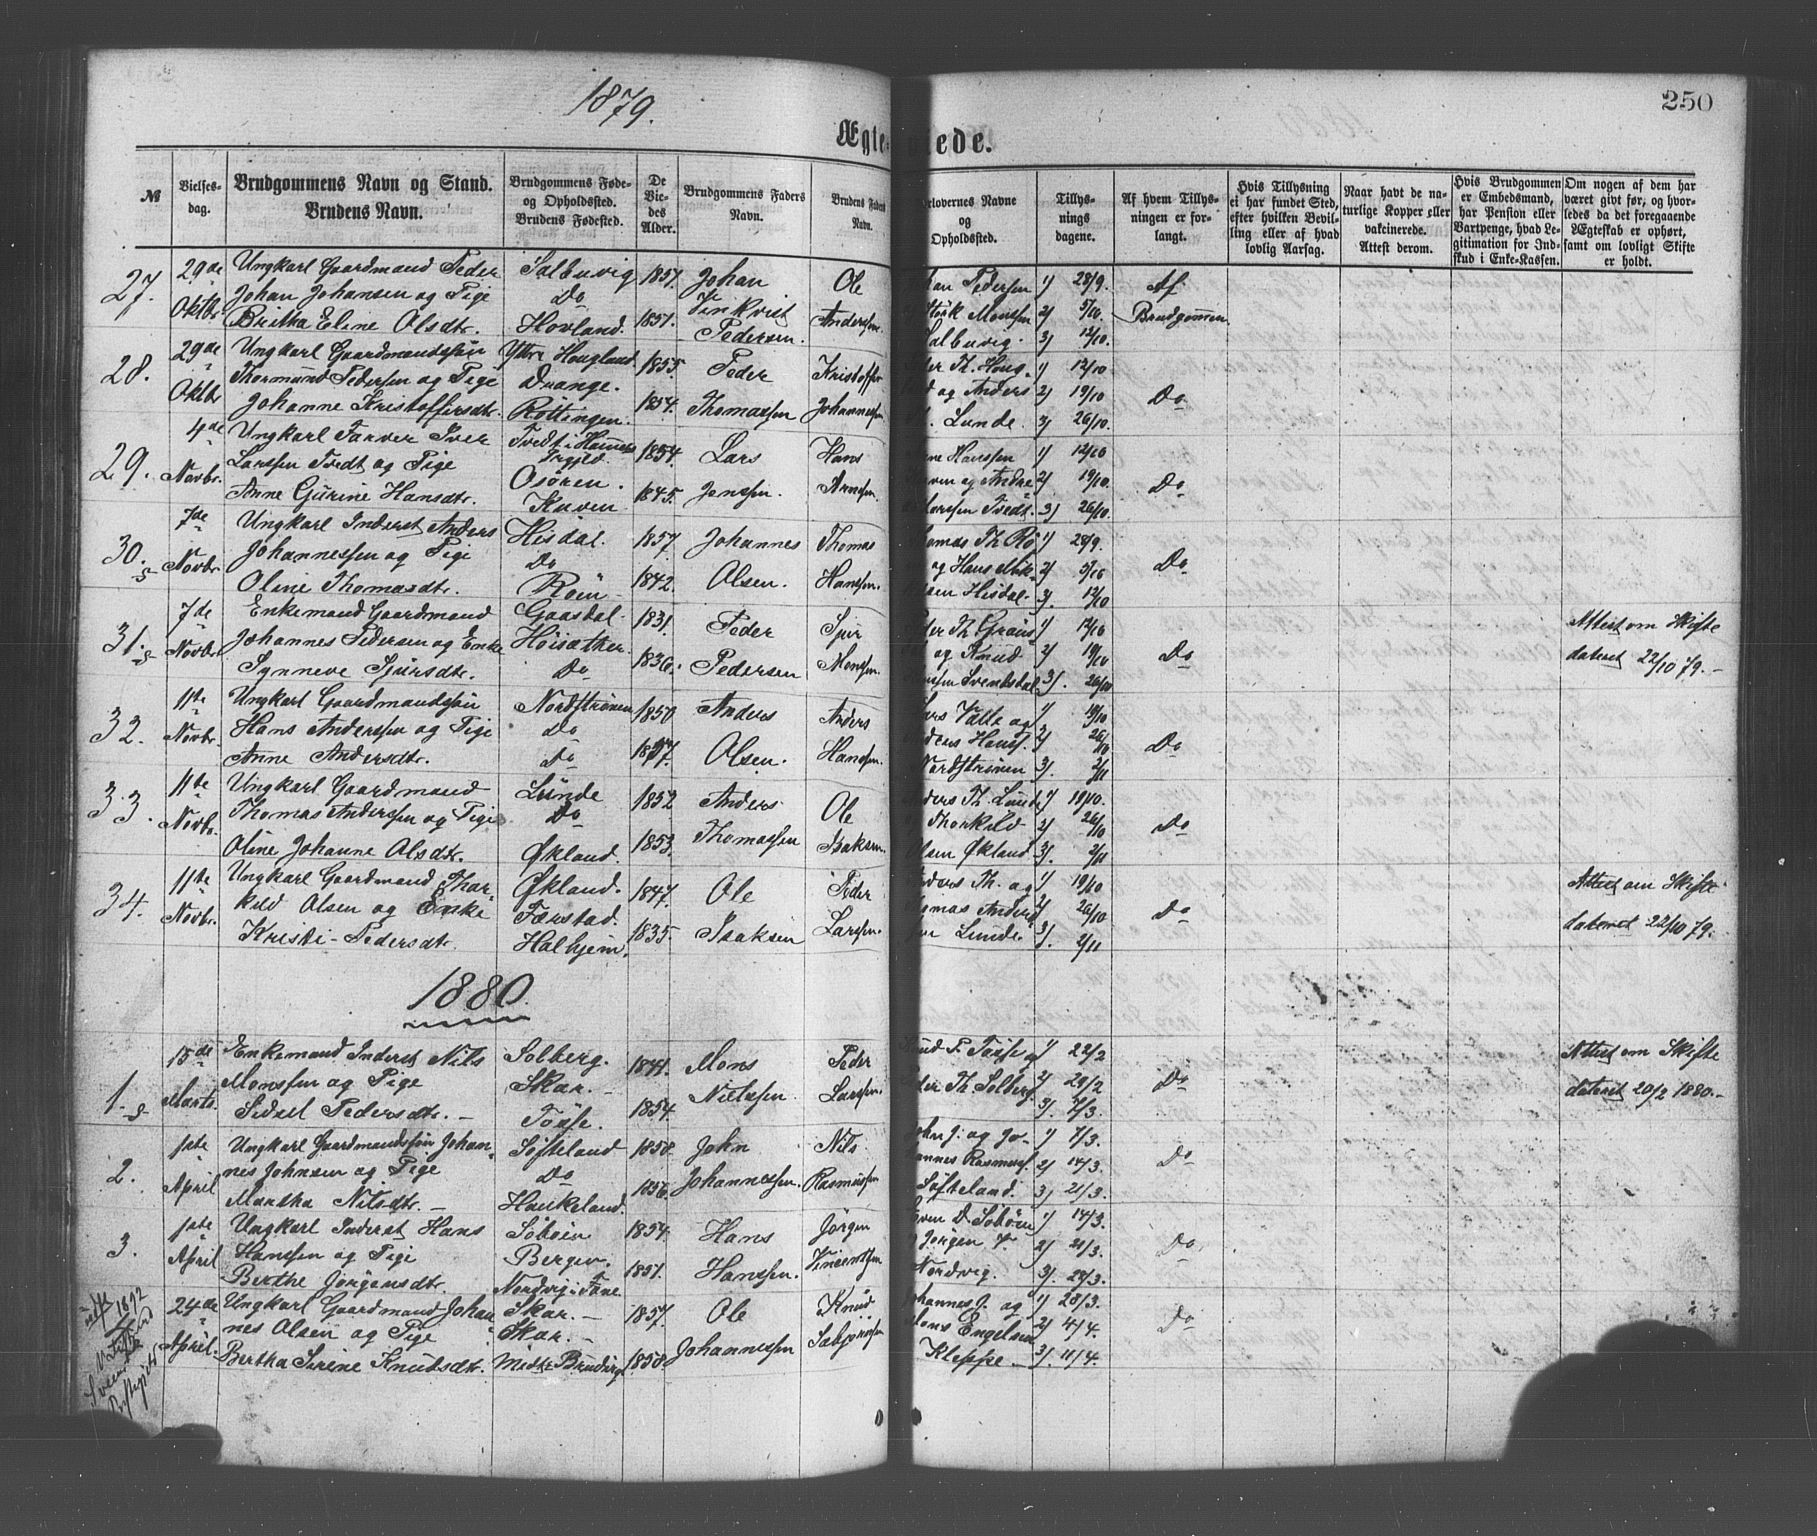 1879.
250
Ægte-
iede.
№
Vielses-
dag.
Brudgommens Navn og Stand.
Brudens Navn.
Brudgommens Føde-
og Opholdssted.
Brudens Fødested.
De
Vie-
des
Alder.
Brudgommens Faders
Navn.
Brudens Faders
Navn.
orlovernes Navne
og
Opholdssted.
Tillys-
nings
dagene.
Af hvem Tillys-
ningen er for-
langt.
Hvis Tillysning
ei har fundet Sted,
efter hvilken Bevil-
ling eller af hvad
lovlig Aarsag.
Naar havt de na-
turlige Kopper eller
vakcinerede.
Attest derom.
Hvis Brudgommen
er Embedsmand,
har Pension eller
Vartpenge, hvad Le-
gitimation for Ind-
skud i Enke-Kassen.
Om nogen af dem har
været givt før, og hvor-
ledes da det foregaaende
Ægteskab er ophørt,
samt om lovligt Skifte
er holdt.
27.
29de
Oktbr
Ungkarl Gaardmand Peder
Johan Johansen og Pige
Britha Eline Olsdtr.
Salbuvig
Do
Hovland.
1857.
1851.
Johan
Pedersen.
Ole
Anderssen.
han Pedersen
Monssen
Salbuvig.
1) 28/9.
2) 5/10.
3) 12/10.
Af
Brudgommen
28.
29de
Oktbr
Ungkarl Gaardmandssøn
Thormund Pedersen og Pige
Johanne Kristoffersdtr.
Ytre Hougland
Drange.
Röttingen.
1855.
1854.
Peder
Thomassen
Kristoffer
Johannessen
der Th. Houg-
d og Anders
Lunde.
1) 12/10
2) 19/10
3) 26/10.
Do
29.
4de
Novbr.
Ungkarl Farver Iver
Larssen Tvedt og Pige
Anne Gurine Hansdtr.
Tvedt i Hammers
Prgjed.
Osören.
Kuven
1854.
1845.
Lars
Jenssen.
Hans
Arnesen.
ne Hanssen
ven og Andre
Larssen Tvedt.
1) 12/10
2) 19/10.
3) 26/10.
Do
30.
7de
Novbr.
Ungkarl Inderst Anders
Johannessen og Pige
Oline Thomasdtr.
Hisdal.
Do
Röen
1857.
1842.
Johannes
Olsen.
Thomas
Hanssen.
omas Th. Rö
og Hans Mik-
sen Hisdal.
1) 28/9.
2) 5/10
3). 12/10
Do
31.
7de
Novbr
Enkemand Gaardmand
Johannes Pedersen og Enke
Synneve Sjursdtr.
Gaasdal.
Höisæther.
Do
1831.
1836.
Peder
Pedersen
Sjur
Monssen.
der Th.
og Knud
Svendsdal
1) 12/10
2) 19/10
3). 26/10
Do
Attest om Skifte
dateret 22/10 79.-
32.
11te
Novbr.
Ungkarl Gaardmandssøn
Hans Anderssen og Pige
Anne Andersdtr.
Nordströnen
Do
Do
1850
Anders
Olsen.
Anders
Hanssen.
ars Valle og
ders Hans.
Nordströnen
1) 19/10
2) 26/10
3). 2/11
Do
33.
11te
Novbr.
Ungkarl Gaardmand
Thomas Anderssen og Pige
Oline Johanne Olsdtr.
Lunde
Do
Økland.
1852
1853.
Anders
Thomassen
Ole
Isaksen.
nders Th. Lunde
Thorkild
Olsen Økland
1) 19/10.
2) 26/10
3). 2/11
Do
34.
11te
Novbr.
Ungkarl Gaardmand Thor-
kild Olsen og Enke
Kristi Pedersdtr.
Økland.
Færstad.
Halhjem.
1847.
1835.
Ole
Isaksen
Peder
Larssen.
nders Th. og
omas Anders
Lunde.
1) 19/10
2) 26/10
3). 2/11
Do
Attest om Skifte
dateret 22/10 79.
1880.
1.
15de
Marts.
Enkemand Inderst Nils
Monssen og Pige
Sidsel Pedersdtr. -
Solberg.
Skar. -
Töse.
1841.
1854.
Mons
Nielssen.
Peder
Larssen.
nud P. Töse og
der Th. Solberg
1) 22/2
2) 29/2
3). 7/3.
Do
Attest om Skifte
dateret 20/2 1880.-
2.
1ste
April
Ungkarl Gaardmandssøn Johan-
nes Johnsen og Pige
Martha Nilsdtr. -
Söfteland
Do
Haukeland.
1858.
1856.
John
Johannessen.
Nils
Rasmussen
John J. og Jo-
annes Rasmuss.
Söfteland.
1) 7/3.
2) 14/3.
3) 21/3.
Do
3.
1ste
April
Ungkarl Inderst Hans
Hanssen og Pige
Berthe Jörgensdtr.
Söböen
Bergen.
Nordvig i Fane
1854.
1851.
Hans
Hanssen.
Jörgen
Vincentssen
ven D. Söböen
Jörgen V.
Nordvig.
1) 14/3.
2) 21/3.
3). 28/3.
Do
24de
April.
Ungkarl Gaardmand Johan-
nes Olsen og Pige
Bertha Serine Knudsdtr.
Skar. -
Skar. -
Midtr Bruvig
1857.
1858.
Ole
Johannessen
Knud
Johannes J. og
Mons Engelsen
Kleppe. -
1) 28/3.
2) 4/4.
3). 11/4.
Do
1892